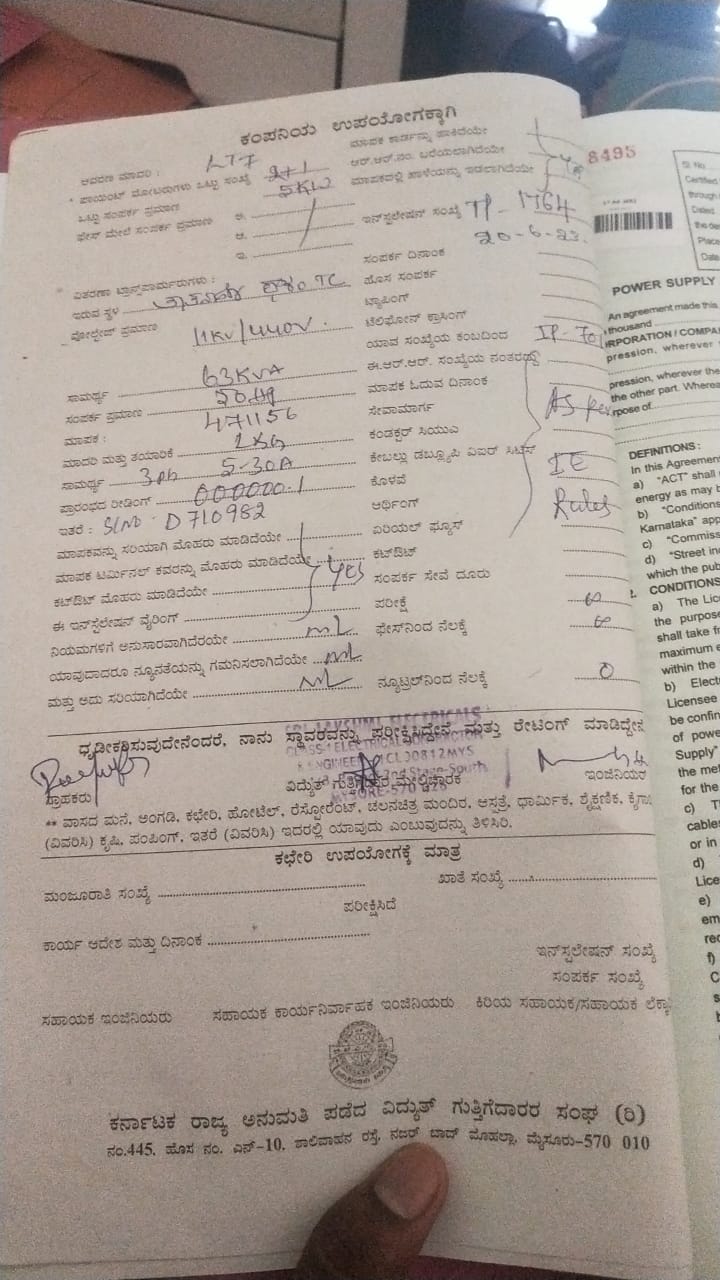 ಕಂಪನಿಯ ಉಪಯೋಗಕ್ಕಾಗಿ
ಆವರಣ ಮಾದರಿ : LT7 ಮಾಪಕ ಕಾರ್ಡನ್ನು ಹಾಕಿದೆಯೇ
* ಪಾಯಿಂಟ್ ಮೋಟರುಗಳು ಒಟ್ಟು ಸಂಖ್ಯೆ 2+1 ಆರ್.ಆರ್.ನಂ. ಬರೆಯಲಾಗಿದೆಯೇ
ಒಟ್ಟು ಸಂಪರ್ಕ ಪ್ರಮಾಣ 5KW ಮಾಪಕದಲ್ಲಿ ಹಾಳೆಯನ್ನು ಇಡಲಾಗಿದೆಯೇ
ಫೇಸ್ ಮೇಲೆ ಸಂಪರ್ಕ ಪ್ರಮಾಣ ಅ.
ಆ. ಇನ್‌ಸ್ಟಲೇಷನ್ ಸಂಖ್ಯೆ TP-1764
ಇ. 20-6-23
ಸಂಪರ್ಕ ದಿನಾಂಕ
ವಿತರಣಾ ಟ್ರಾನ್ಸ್‌ಫಾರ್ಮರುಗಳು : ಹೊಸ ಸಂಪರ್ಕ
ಇರುವ ಸ್ಥಳ TC ಟ್ಯಾಪಿಂಗ್
ವೋಲ್ಟೇಜ್ ಪ್ರಮಾಣ 11KV/440V. ಟೆಲಿಫೋನ್ ಕ್ರಾಸಿಂಗ್
ಯಾವ ಸಂಖ್ಯೆಯ ಕಂಬದಿಂದ
ಸಾಮರ್ಥ್ಯ 63KVA ಈ.ಆರ್.ಆರ್. ಸಂಖ್ಯೆಯ ನಂತರವು
ಸಂಪರ್ಕ ಪ್ರಮಾಣ ಮಾಪಕ ಓದುವ ದಿನಾಂಕ
ಮಾಪಕ : 471156 ಸೇವಾಮಾರ್ಗ
ಮಾದರಿ ಮತ್ತು ತಯಾರಿಕೆ ಕಂಡಕ್ಟರ್ ಸಿಯುಎ
ಸಾಮರ್ಥ್ಯ 3ph 5-30A ಕೇಬಲ್ಲು ಡಬ್ಲ್ಯೂಪಿ ವಿಐರ್
ಪ್ರಾರಂಭದ ರೀಡಿಂಗ್ 000000.1 ಕೊಳವೆ
ಇತರೆ : Sl No D710982 ಆರ್ಥಿಂಗ್
ಮಾಪಕವನ್ನು ಸರಿಯಾಗಿ ಮೊಹರು ಮಾಡಿದೆಯೇ ಏರಿಯಲ್ ಫ್ಯೂಸ್
ಮಾಪಕ ಟರ್ಮಿನಲ್ ಕವರನ್ನು ಮೊಹರು ಮಾಡಿದೆಯೇ ಕಟ್‌ಔಟ್
ಕಟ್‌ಔಟ್ ಮೊಹರು ಮಾಡಿದೆಯೇ Yes ಸಂಪರ್ಕ ಸೇವೆ ದೂರು
ಈ ಇನ್‌ಸ್ಟಲೇಷನ್ ವೈರಿಂಗ್ ಪರೀಕ್ಷೆ
ನಿಯಮಗಳಿಗೆ ಅನುಸಾರವಾಗಿದೆರಯೇ ಫೇಸ್‌ನಿಂದ ನೆಲಕ್ಕೆ
ಯಾವುದಾದರೂ ನ್ಯೂನತೆಯನ್ನು ಗಮನಿಸಲಾಗಿದೆಯೇ
ಮತ್ತು ಅದು ಸರಿಯಾಗಿದೆಯೇ ನ್ಯೂಟ್ರಲ್‌ನಿಂದ ನೆಲಕ್ಕೆ 0
IE
Rules
ಧೃಡೀಕರಿಸುವುದೇನೆಂದರೆ, ನಾನು ಸ್ಥಾವರವನ್ನು ಪರೀಕ್ಷಿಸಿದ್ದೇನೆ ಮತ್ತು ರೇಟಿಂಗ್ ಮಾಡಿದ್ದೇನೆ
SRI LAKSHMI ELECTRICALS
CLASS-1 ELECTRICAL CONTRACTOR
ಗ್ರಾಹಕರು ವಿದ್ಯುತ್ ಗುತ್ತಿಗೆದಾರರ ಮೇಲ್ವಿಚಾರಕ ಇಂಜಿನಿಯರ
** ವಾಸದ ಮನೆ, ಅಂಗಡಿ, ಕಛೇರಿ, ಹೋಟೆಲ್, ರೆಸ್ಟೋರೆಂಟ್, ಚಲನಚಿತ್ರ ಮಂದಿರ, ಆಸ್ಪತ್ರೆ, ಧಾರ್ಮಿಕ, ಶೈಕ್ಷಣಿಕ, ಕೈಗಾ
(ವಿವರಿಸಿ) ಕೃಷಿ, ಪಂಪಿಂಗ್, ಇತರೆ (ವಿವರಿಸಿ) ಇದರಲ್ಲಿ ಯಾವುದು ಎಂಬುವುದನ್ನು ತಿಳಿಸಿರಿ.
ಕಛೇರಿ ಉಪಯೋಗಕ್ಕೆ ಮಾತ್ರ
ಮಂಜೂರಾತಿ ಸಂಖ್ಯೆ ಖಾತೆ ಸಂಖ್ಯೆ
ಪರೀಕ್ಷಿಸಿದೆ
ಕಾರ್ಯ ಆದೇಶ ಮತ್ತು ದಿನಾಂಕ
ಇನ್‌ಸ್ಟಲೇಷನ್ ಸಂಖ್ಯೆ
ಸಂಪರ್ಕ ಸಂಖ್ಯೆ
ಸಹಾಯಕ ಇಂಜಿನಿಯರು ಸಹಾಯಕ ಕಾರ್ಯನಿರ್ವಾಹಕ ಇಂಜಿನಿಯರು ಕಿರಿಯ ಸಹಾಯಕ/ಸಹಾಯಕ ಲೆಕ್ಕಾ
ಕರ್ನಾಟಕ ರಾಜ್ಯ ಅನುಮತಿ ಪಡೆದ ವಿದ್ಯುತ್ ಗುತ್ತಿಗೆದಾರರ ಸಂಘ (ರಿ)
ನಂ.445, ಹೊಸ ನಂ. ಎನ್-10, ಶಾಲಿವಾಹನ ರಸ್ತೆ, ನಜರ್ ಬಾದ್ ಮೊಹಲ್ಲಾ, ಮೈಸೂರು-570 010
8495
Sl. No.
Certified
through
Dated
the de
Place
Date
POWER SUPPLY
An agreement made this
thousand
RPORATION / COMPA
pression, wherever
pression, wherever the
the other part. Wherea
rpose of
DEFINITIONS:
In this Agreement
a) "ACT" shall
energy as may b
b) "Conditions
Karnataka" app
c) "Commiss
d) "Street in
which the pub
CONDITIONS
a) The Lic
the purpose
shall take fr
maximum e
within the
b) Elect
Licensee
be confin
of powe
Supply"
the met
for the
c) T
cable
or in
d)
Lice
e)
em
rec
f)